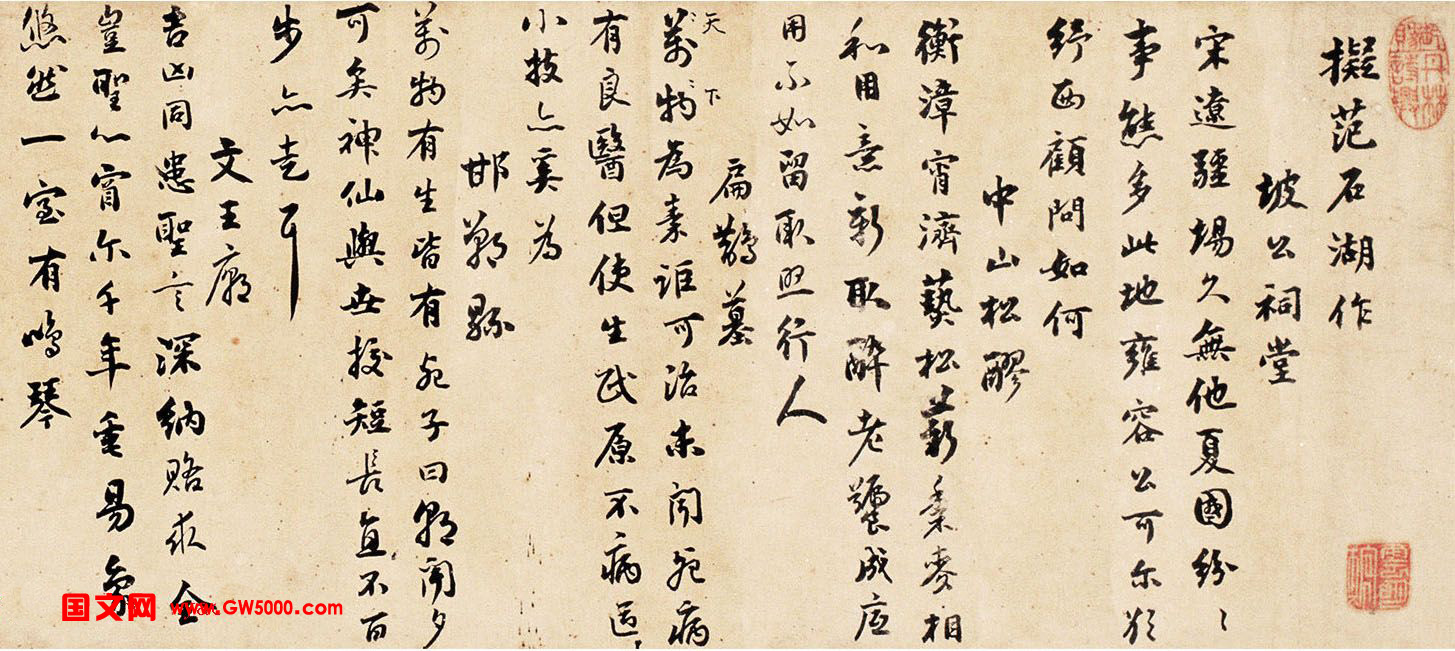 擬范石湖作
坡公祠堂
宋遼疆場久無他夏國紛〻
事態多此地雍容公可尔欲
紓西顧問如何
中山松醪
衡漳宵濟蓺松薪黍麥相
和用意新取醉老饕成底
用不如留取照行人
扁鵲墓
天下
萬物為秦誰可治未聞死病
有良醫但使生民原不病區〻
小技亦奚為
邯鄲縣
萬物有生皆有死子曰朝聞夕
可矣神仙與世挍短長直不百
步亦走耳
文王廟
吉凶同患聖言深納賂求全
豈聖心宵尔千年重易象
悠然一室有鳴琴
国文网 www.GW5000.com